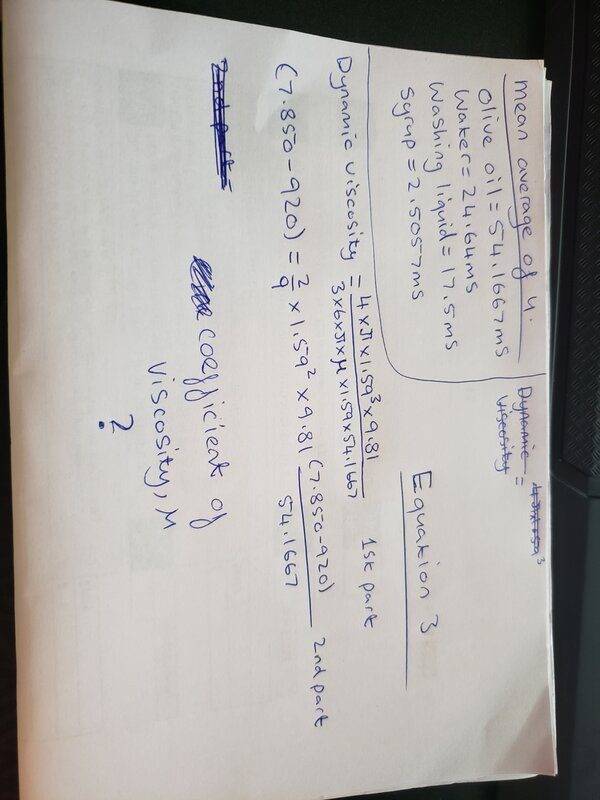 mean average of 4.
Olive oil = 54.1667ms
Water = 24.64ms
Washing liquid = 17.5ms
Syrup = 2.5057ms
Dynamic
viscosity =
Equation 3
Dynamic viscosity = 4 x π x 1.59³ x 9.81
3 x 6 x π x μ x 1.59 x 54.1667
1st part
(7.850 - 920) = 2/9 x 1.59² x 9.81 (7.850 - 920)
54.1667
2nd part
2nd part =
coefficient of
viscosity, μ
?